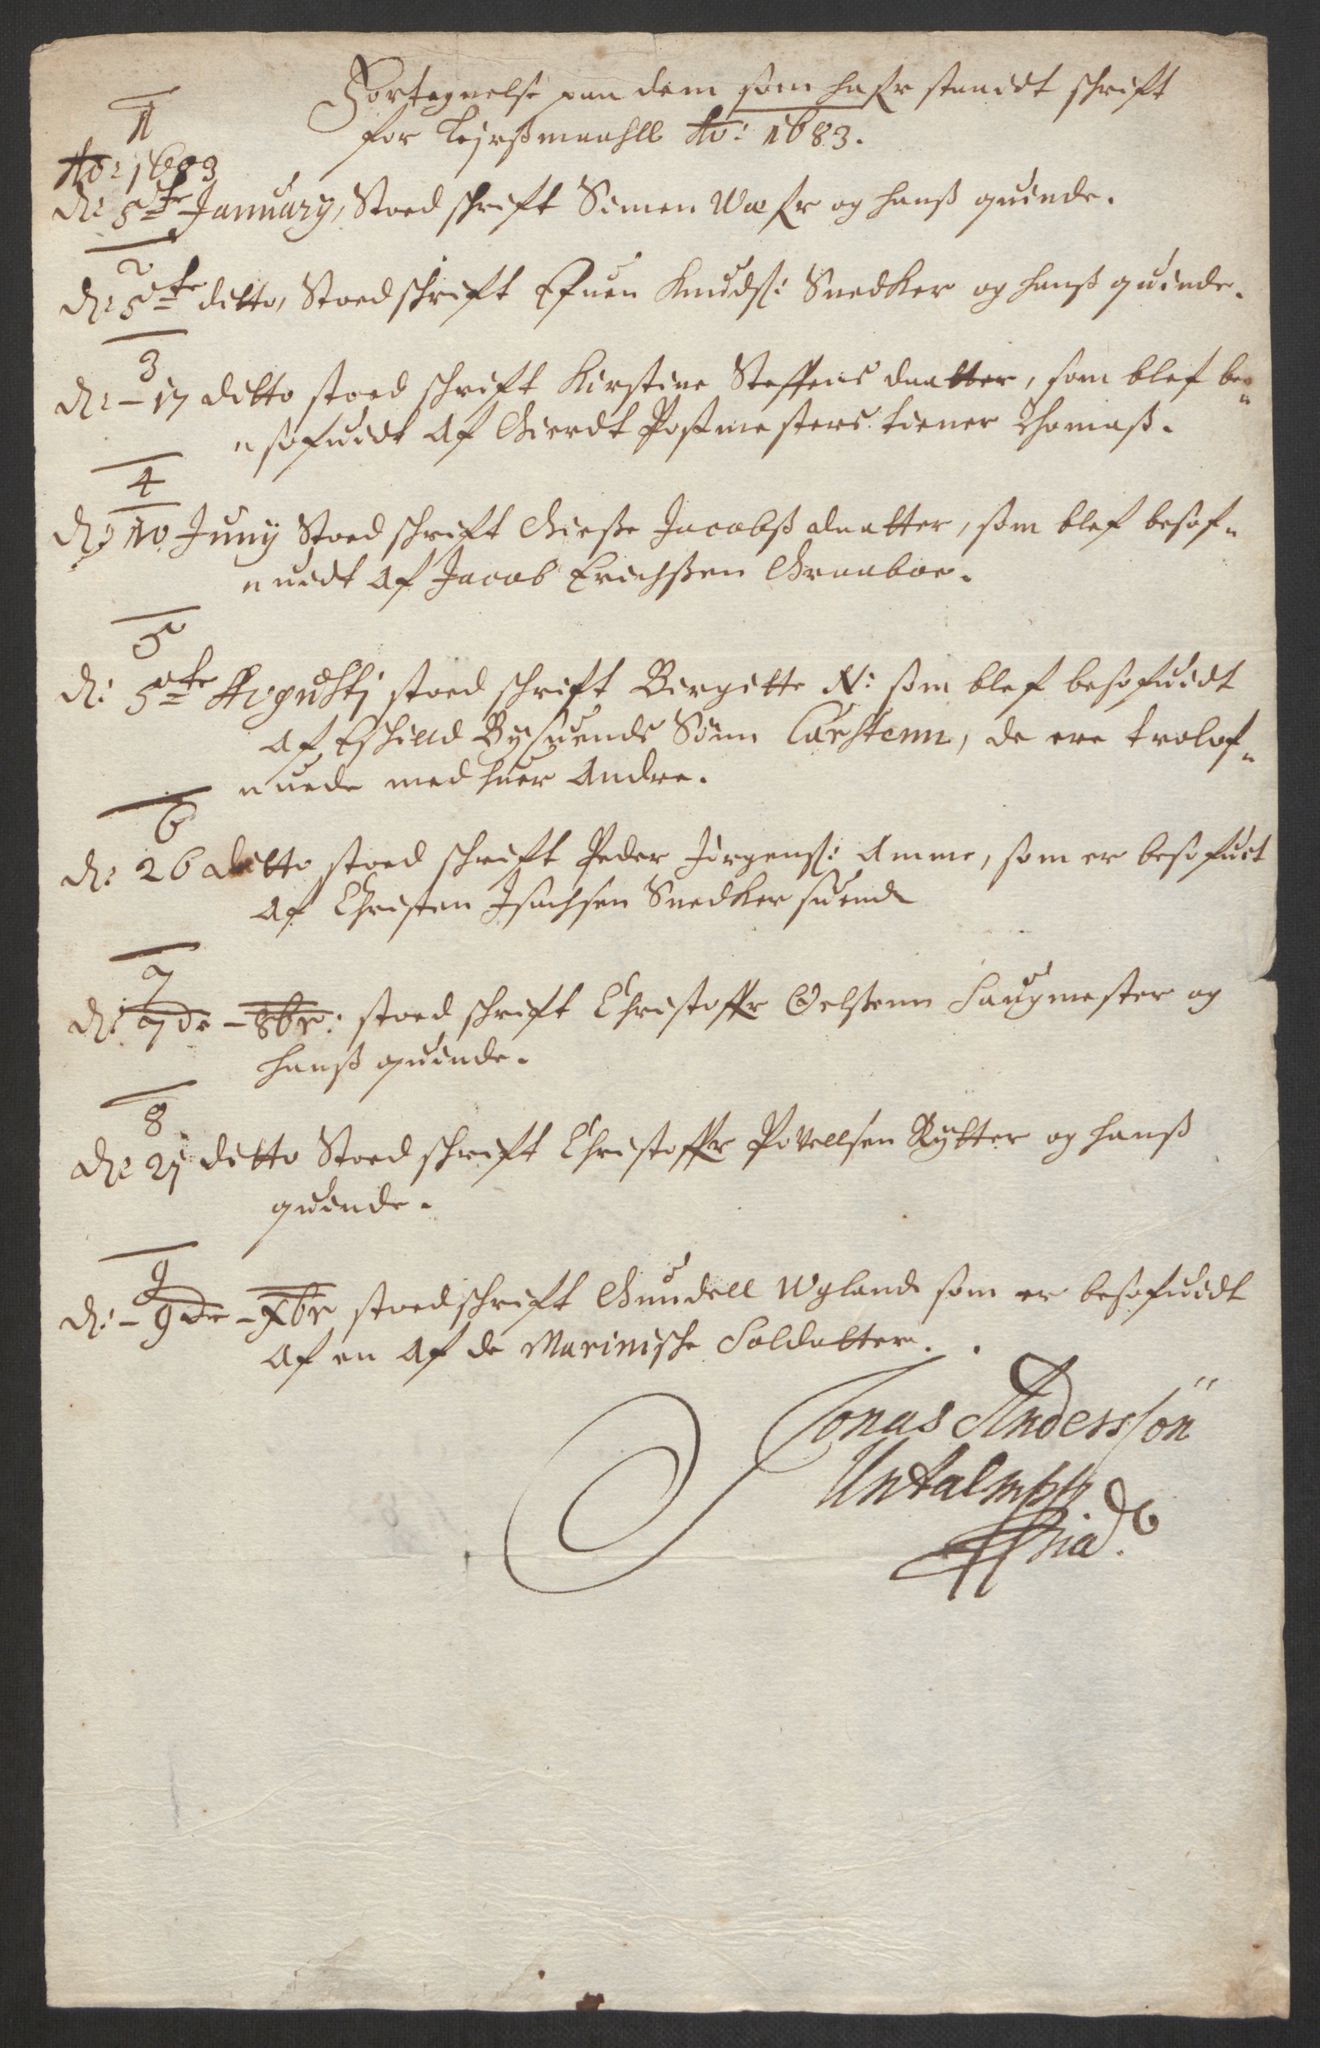 Fortegnelse paa dem som hafr standt schrift
for Leyrßmaahll Ao: 1683.
1
Ao: 1683
d: 5te January, Stoed schrift Simen Wæfr og hanß quinde.
2
d: 5te ditto, Stoed schrift Efuen Knuds: Snedker og hanß quinde.
3
d: 17 ditto stoed schrift Kirstine Steffens daatter, som blef be=
=sofuidt af Gierdt Postmesters tiener Thomaß.
4
d: 10 Juny Stoed schrift Gieße Jacobß daatter, som blef besof=
=uidt af Jacob Erichßen Graaboe.
5
d: 5te Augusti stoed schrift Birgitte N: som blef besofuidt
af Eschilld Bysuends Sønn Carstenn, de ere trolof=
=uede med huer Andre.
6
d: 26 ditto stoed schrift Peder Jørgens: Amme, som er besofuet
af Christen Isachsen Snedker suend
7
d: 7de 8br: stoed schrift Christoffr Oelßenn Laugmester og
hanß quinde.
8
d: 21 ditto Stoed schrift Christoffr Povellsen Rytter og hanß
quinde.
9
d: 9de Xbr stoed schrift Gundell Wgland som er besofuidt
af en af de Marinische Soldatter.
Jonas Anderssøn